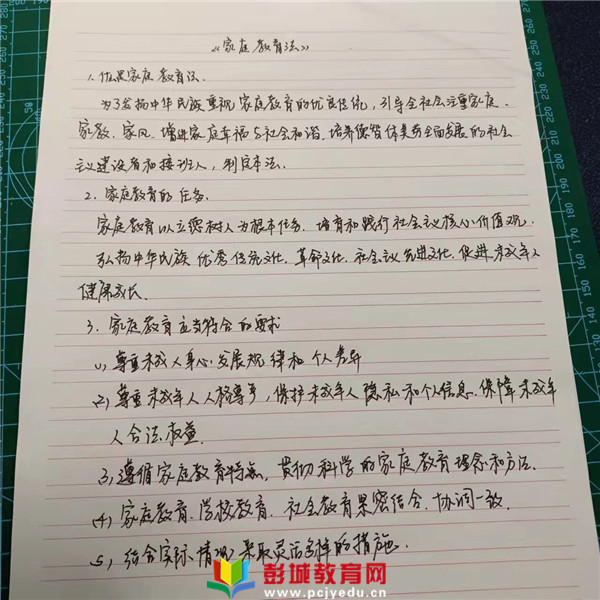 《家庭教育法》
1. 促进家庭教育法.
为了发扬中华民族重视家庭教育的优良传统, 引导全社会注重家庭.
家教、家风, 增进家庭幸福与社会和谐. 培养德智体美劳全面发展的社会
主义建设者和接班人, 制定本法.
2. 家庭教育的任务.
家庭教育以立德树人为根本任务, 培育和践行社会主义核心价值观,
弘扬中华民族优秀传统文化、革命文化、社会主义先进文化, 促进未成年人
健康成长.
3. 家庭教育应当符合的要求
(1) 尊重未成人身心发展规律和个人差异
(2) 尊重未成年人人格尊严, 保护未成年人隐私和个人信息. 保障未成年
人合法权益.
(3) 遵循家庭教育特点, 贯彻科学的家庭教育理念和方法.
(4) 家庭教育、学校教育、社会教育紧密结合、协调一致.
(5) 结合实际情况采取灵活多样的措施.
彭城教育网
www.pcjyedu.cn